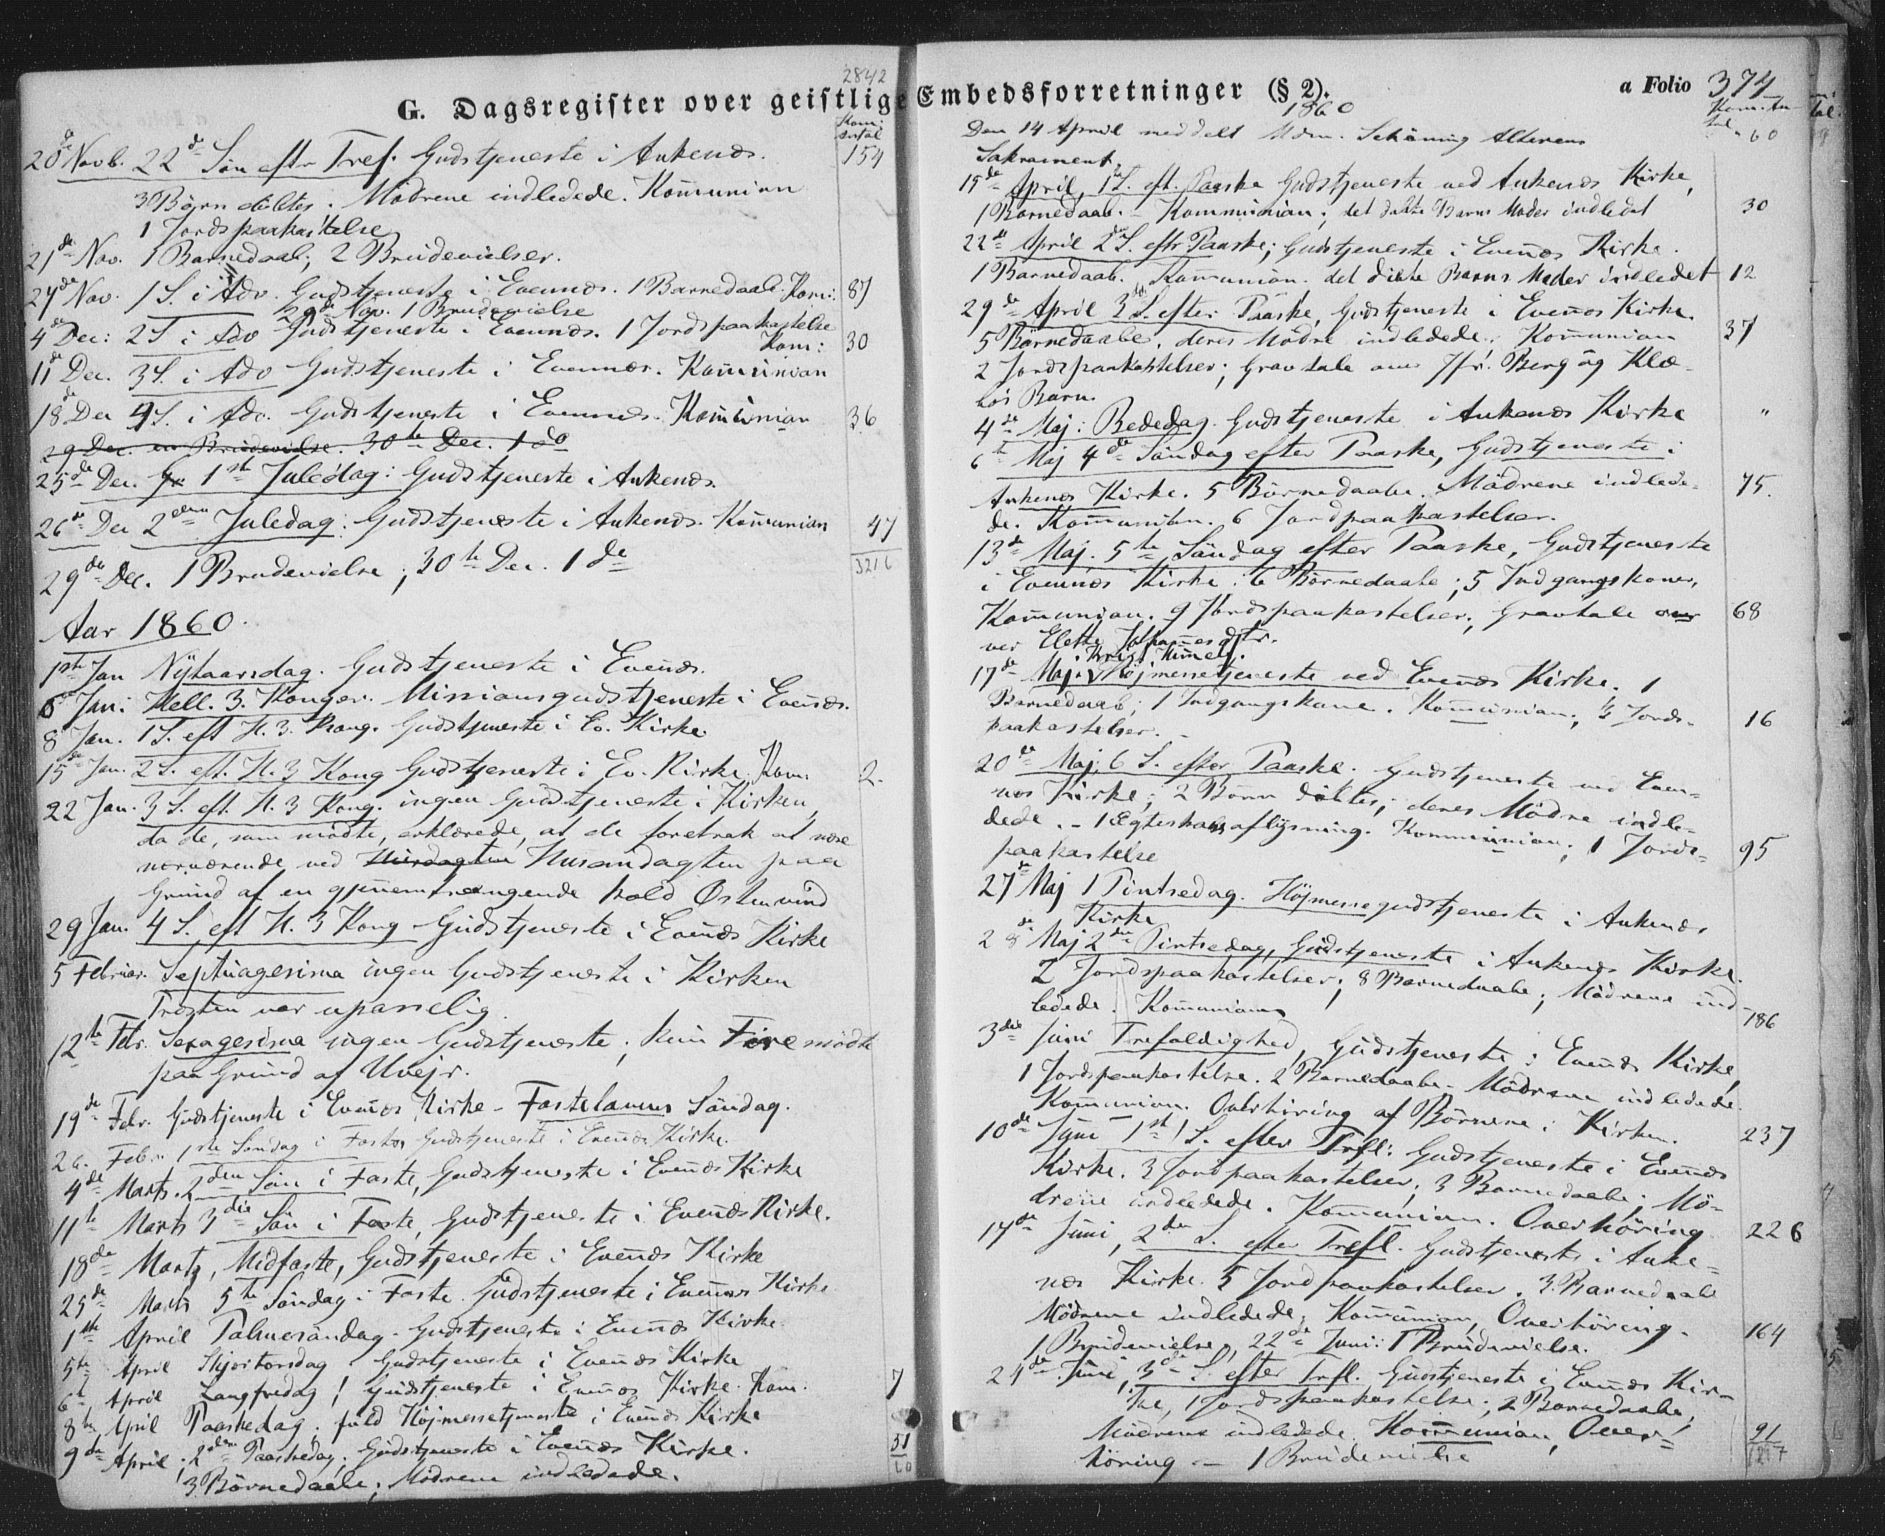 2842
G. Dagsregister over geistlige Embedsforretninger (§ 2).
Kom: Antal
20de Novb. 22de Søn eftr Tref. Gudstjeneste i Ankenes. 154
3 Børn døbtes. Mødrene indledede. Kommunion
1 Jordspaakastelse
21de Nov. 1 Barnedaab; 2 Brudevielser.
27de Nov. 1 S. i Adv. Gudstjeneste i Evennes. 1 Barnedaab. Kom: 87
29de Nov. 1 Brudevielse
4de Dec: 2 S i Adv Gudstjeneste i Evennes. 1 Jordspaakastelse
Kom: 30
11te Dec. 3 S. i Adv Gudstjeneste i Evennes. Kommunion
18de Dec 4 S. i Adv. Gudstjeneste i Evennes. Kommunion 36
29 Dec. en Brudevielse. 30te Dec. 1 do
25de Dec. 1ste Juledag: Gudstjeneste i Ankenes.
26de Dec 2den Juledag: Gudstjeneste i Ankenes. Kommunion 47
3216
29de Dec. 1 Brudevielse; 30te Dec. 1 de
Aar 1860.
1ste Jan Nytaarsdag. Gudstjeneste i Evenes.
6 Jan: Hell. 3. Konger. Missionsgudstjeneste i Evenes.
8 Jan. 1 S. eft H. 3. Kong. Gudstjeneste i Ev. Kirke.
15de Jan. 2 S. eft. H. 3 Kong Gudstjeneste i Ev. Kirke, Kom. 2.
22 Jan. 3 S. eft. H. 3 Kong. ingen Gudstjeneste i Kirken,
da de, som mødte, erklærede, at de foretrak at være
nærværende ved Husandagten paa
Grund af en gjennemtrængende kold Østenvind
29 Jan. 4 S. eft H. 3 Kong Gudstjeneste i Evenes Kirke
5 Februar. Septuagesima ingen Gudstjeneste i Kirken
Præsten var upasselig.
12te Febr. Sexagesima ingen Gudstjeneste; kun Fire mødte
paa Grund af Uvejr.
19de Febr. Gudstjeneste i Evenes Kirke - Fastelavens Søndag.
26. Febr. 1ste Søndag i Faste, Gudstjeneste i Evenes Kirke.
4de Marts. 2den Søn i Faste, Gudstjeneste i Evenes Kirke
11te Marts 3die Søn i Faste, Gudstjeneste i Evenes Kirke.
18de Marts, Midfaste, Gudstjeneste i Evenes Kirke
25de Marts 5te Søndag i Faste. Gudstjeneste i Evenes Kirke
1ste April Palmesøndag. Gudstjeneste i Evenes Kirke.
5te April Skjertorsdag, Gudstjeneste i Evenes Kirke
6te April Langfredag; Gudstjeneste i Evenes Kirke. Kom. 7
8de April Paaskedag: fuld Højmessetjeneste i Evenes Kirke
9de April; 2den Paaskedag; Gudstjeneste i Evenes Kirke. 51
3 Børnedaabe; Mødrene indledede. 60
a Folio 374
1860
Kom. An-
tal
Den 14 April meddelt Mdm. Schøning Alterens " 60
Sakrament.
15de April, 1 S. eft. Paaske Gudstjeneste ved Ankenes Kirke,
1 Børnedaab. - Kommunion; det døbte Barns Moder indledet 30
22de April 2 S. eftr Paaske; Gudstjeneste i Evenes Kirke.
1 Barnedaab. Kommunion. det døbte Barns Moder indledet 12
29de April 3 S. efter Paaske, Gudstjeneste i Evenes Kirke.
5 Børnedaabe, deres Mødre indledede; Kommunion 37
2 Jordspaakastelser; Gravtale over Jfr. Berg og Klæ-
bos Barn.
4de Maj: Bededag. Gudstjeneste i Ankenes Kirke "
6te Maj 4de Søndag efter Paaske, Gudstjeneste i
Ankenes Kirke. 5 Børnedaabe. Mødrene indlede- 75.
de. Kommunion. 6 Jordpaakastelser.
13de Maj. 5te Søndag efter Paaske, Gudstjeneste
i Evennes Kirke; 6 Børnedaabe; 5 Indgangskoner,
Kommunion. 9 Jordspaakastelser; Gravtale 68
ver Elette
17de Maj. Krist. Himmelf. Højmessetjeneste ved Evenes Kirke. 1
Barnedaab; 1 Indgangskone. Kommunion; Jords- 16
paakastelser. -
20de Maj, 6 S. efter Paaske. Gudstjeneste ved Even-
nes Kirke; 2 Børn døbtes; deres Mødre indle-
dede. - 1 Ægteskabsaflysning. Kommunion; 1 Jords- 95
paakastelse
27de Maj 1 Pintsedag. Højmessegudstjeneste i Ankenes
Kirke
28de Maj 2den Pintsedag, Gudstjeneste i Ankenes Kirke.
2 Jordspaakastelser; 8 Barnedaabe; Mødrene ind-
ledede. Kommunion 186
3die Juni Trefoldighed, Gudstjeneste i Evenes Kirke,
1 Jordspaakastelse. 2 Barnedaabe. Mødrene indledede.
Kommunion. Overhøring af Børnene i Kirken.
10de Juni 1ste S. efter Trefl: Gudstjeneste i Evenes 237
Kirke. 3 Jordpaakastelser; 3 Barnedaabe; Mø-
drene indledede. Kommunion. Overhøring
17de Juni, 2den S. efter Trefl. Gudstjeneste i Anke- 226
nes Kirke. 5 Jordpaakastelser. 3. Barnedaabe
Mødrene indledede; Kommunion, Overhøring.
1 Brudevielse, 22de Juni: 1 Brudevielse. 164
24de Juni, 3die S. efter Trefl. Gudstjeneste i Evenes Kir-
ke, 1 Jordspaakastelse; 2 Barnedaabe,
Mødrene indledede. Kommunion, Over- 91
høring - 1 Brudevielse